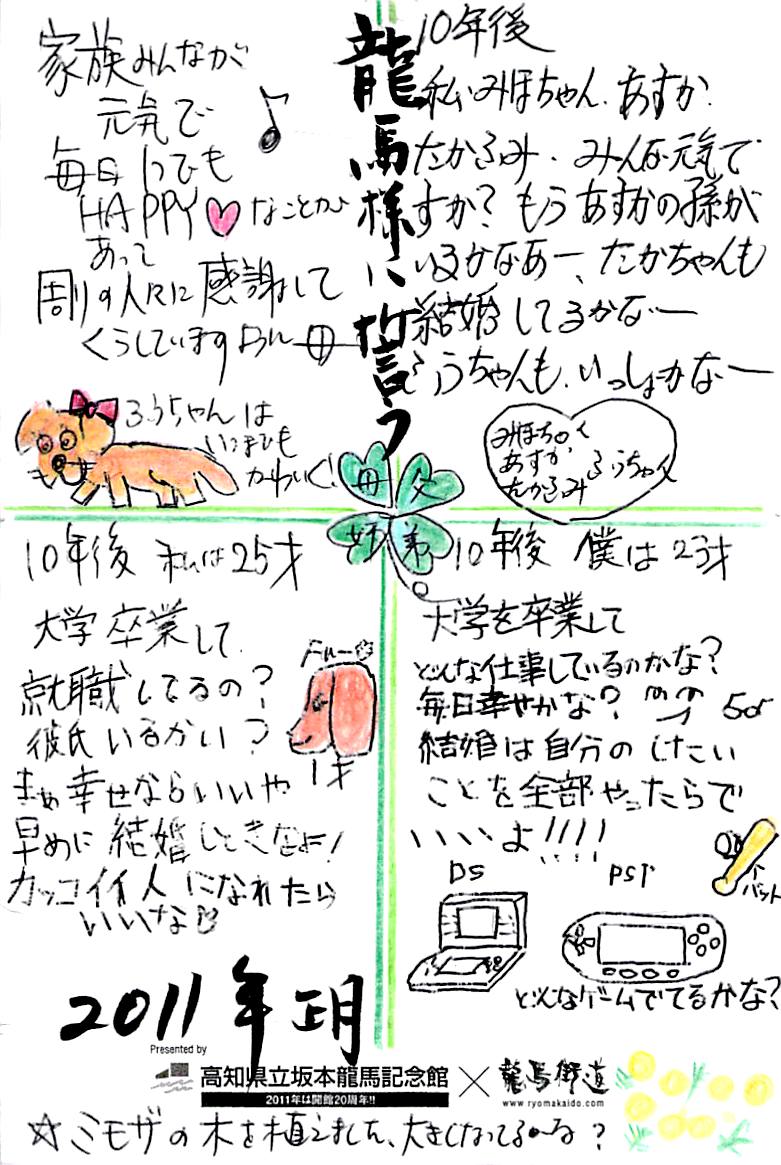 龍馬様に誓う
家族みんなが
元気で
毎日いつでも
HAPPYなことが
あって
周りの人々に感謝して
くらしていますように 母
るうちゃんは
いつまでも
かわいく!
10年後
私、みほちゃん、あすか、
たかふみ、みんな元気で
すか？もうあすかの孫が
いるかなあー、たかちゃんも
結婚してるかなー
るうちゃんも、いっしょかなー
みほちゃん
あすか
たかふみ
るうちゃん
母
父
姉
弟
10年後 私は25才
大学卒業して
就職してるの？
彼氏いるかい？
まぁ幸せならいいや
早めに結婚しときなよ!
カッコイイ人になれたら
いいな
1才
10年後 僕は23才
大学を卒業して
どんな仕事しているのかな？
毎日幸せかな？
結婚は自分のしたい
ことを全部やったらで
いいよ!!!!
DS
PSP
バット
どんなゲームでてるかな？
2011年正月
Presented by
高知県立坂本龍馬記念館
2011年は開館20周年!!
×
龍馬街道
www.ryomakaido.com
☆ミモザの木を植えました、大きくなってるかな？